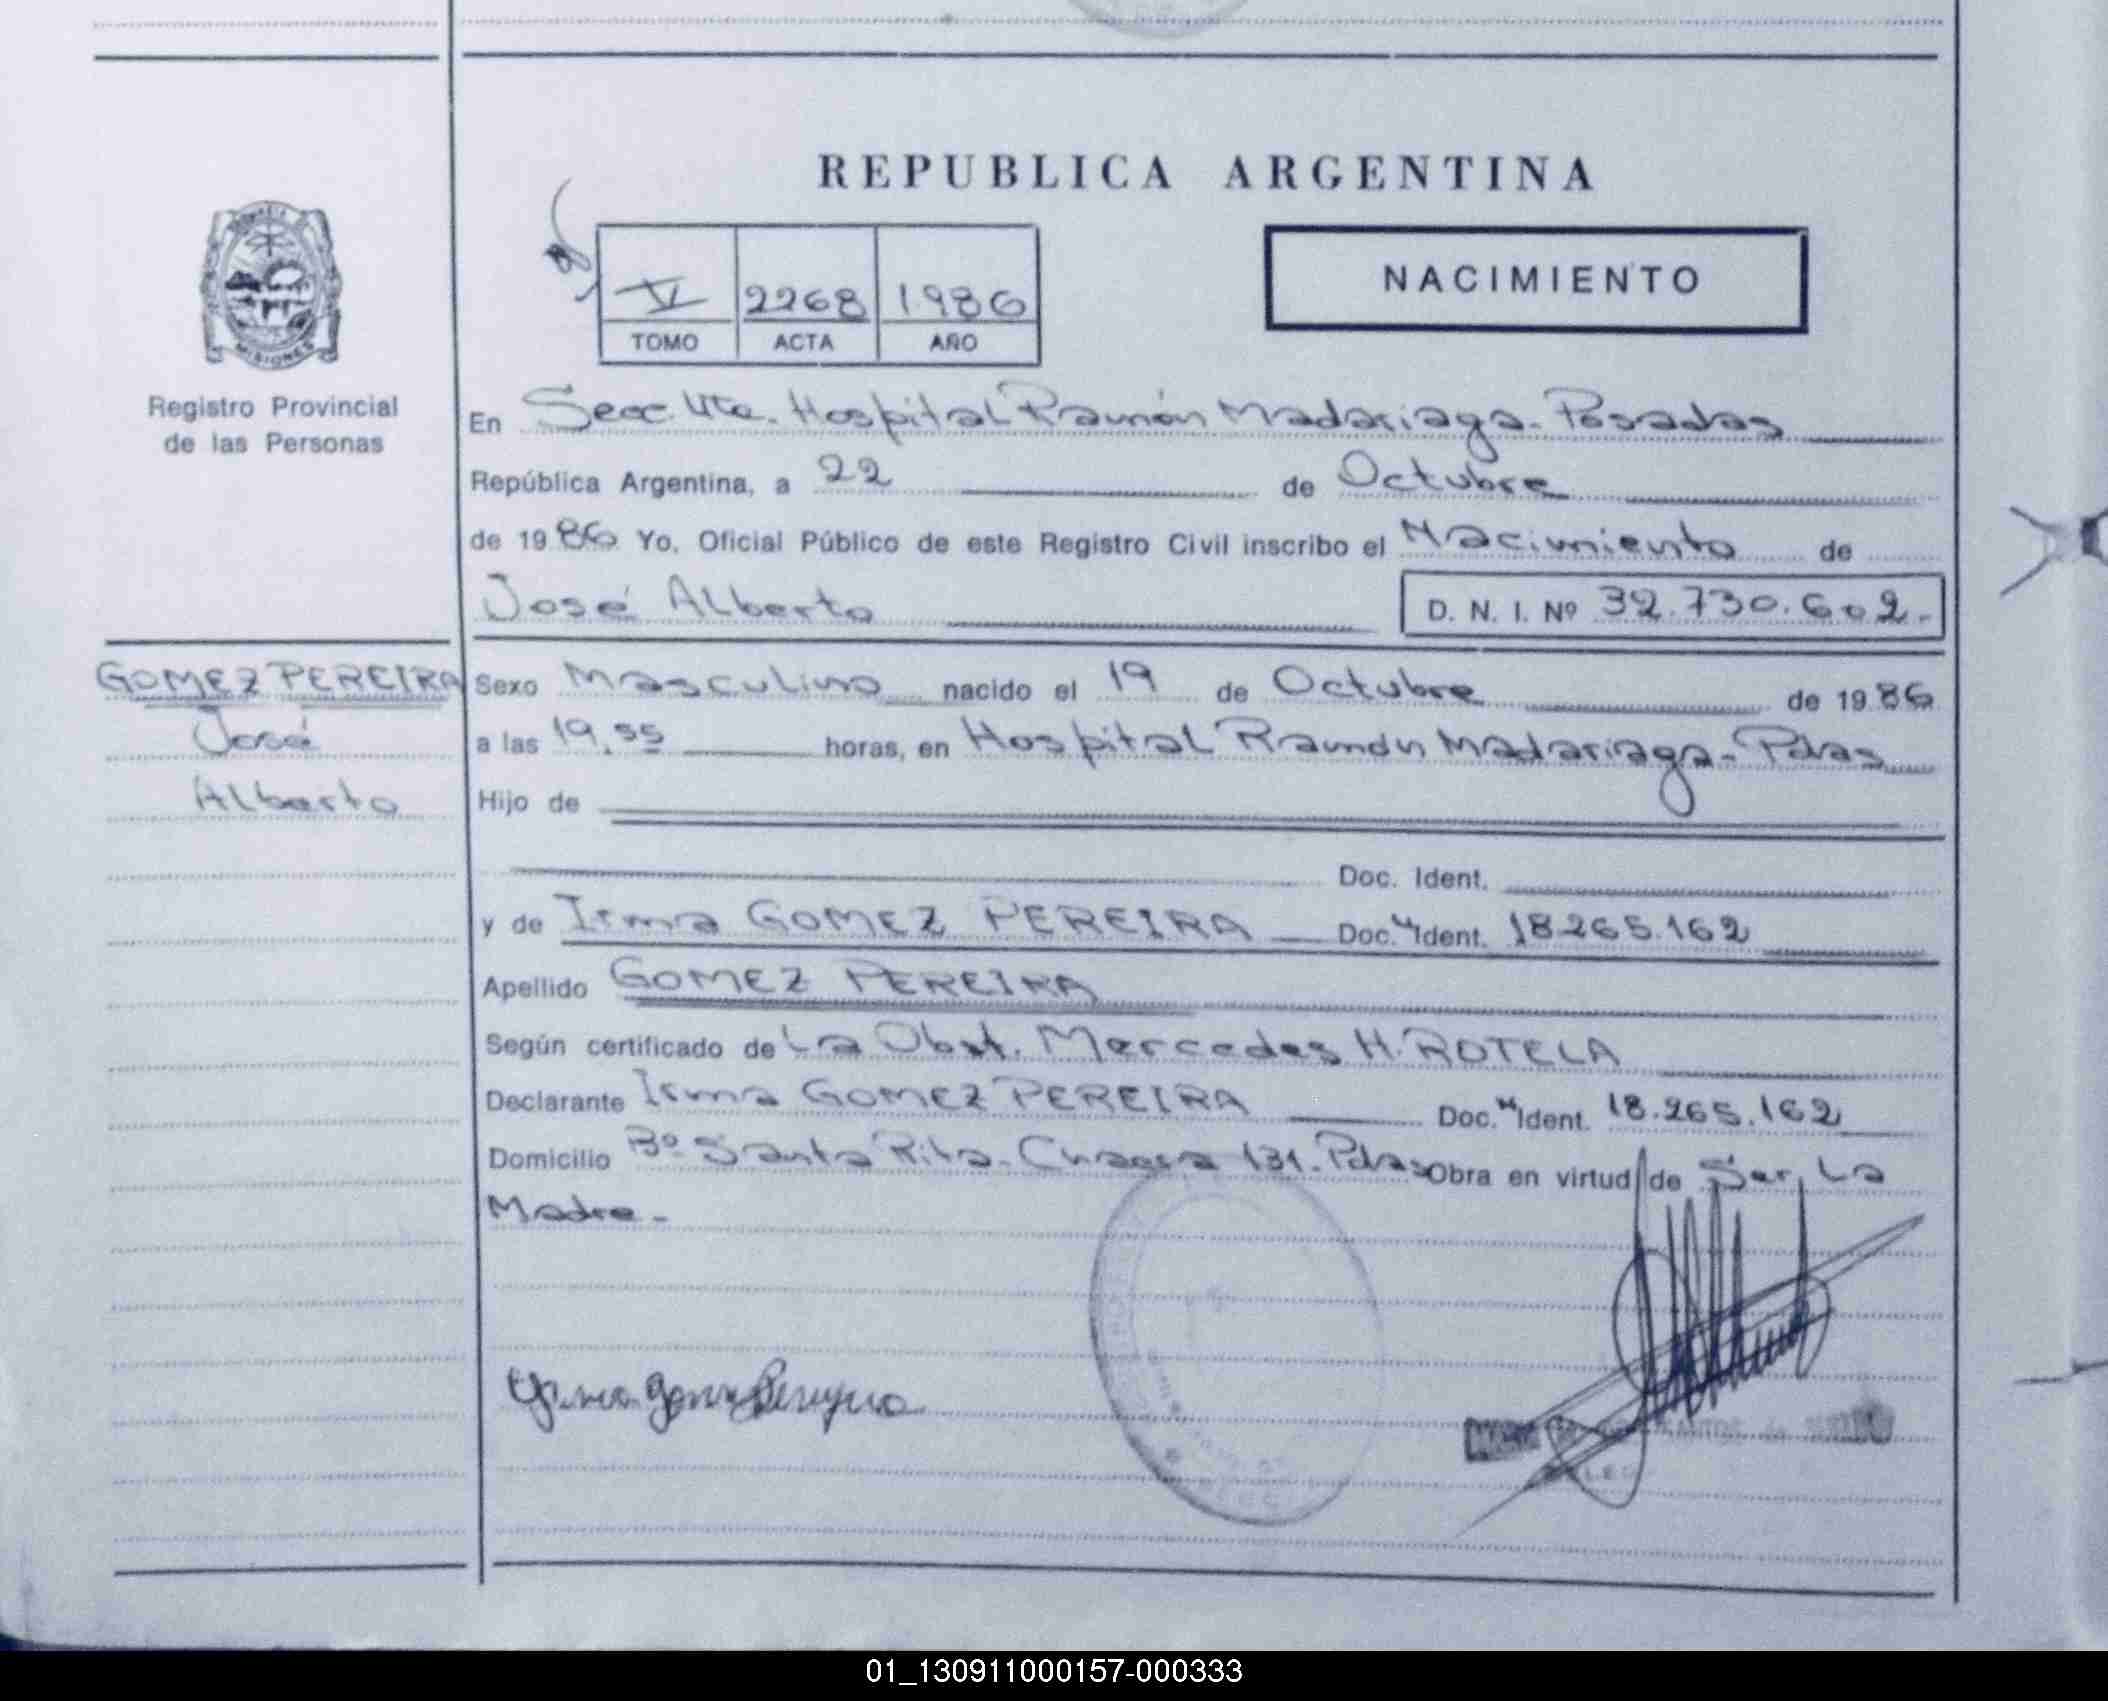 REPUBLICA ARGENTINA
NACIMIENTO
V 2268 1986
TOMO ACTA AÑO
MISIONES
Registro Provincial
de las Personas
En Secc. 4ta. Hospital Ramón Madariaga. Posadas
República Argentina, a 22 de Octubre
de 1986 Yo, Oficial Público de este Registro Civil inscribo el Nacimiento de
José Alberto D. N. I. Nº 32.730.602.-
GOMEZ PEREIRA
José
Alberto
Sexo Masculino nacido el 19 de Octubre de 1986
a las 19.55 horas, en Hospital Ramón Madariaga - Pdas
Hijo de
Doc. Ident.
y de Irma GOMEZ PEREIRA Doc. Ident. 18.265.162
Apellido GOMEZ PEREIRA
Según certificado de La Obst. Mercedes H. ROTELA
Declarante Irma GOMEZ PEREIRA Doc. Ident. 18.265.162
Domicilio Bº Santa Rita. Chacra 131. Pdas Obra en virtud de Ser La
Madre.-
01_130911000157-000333